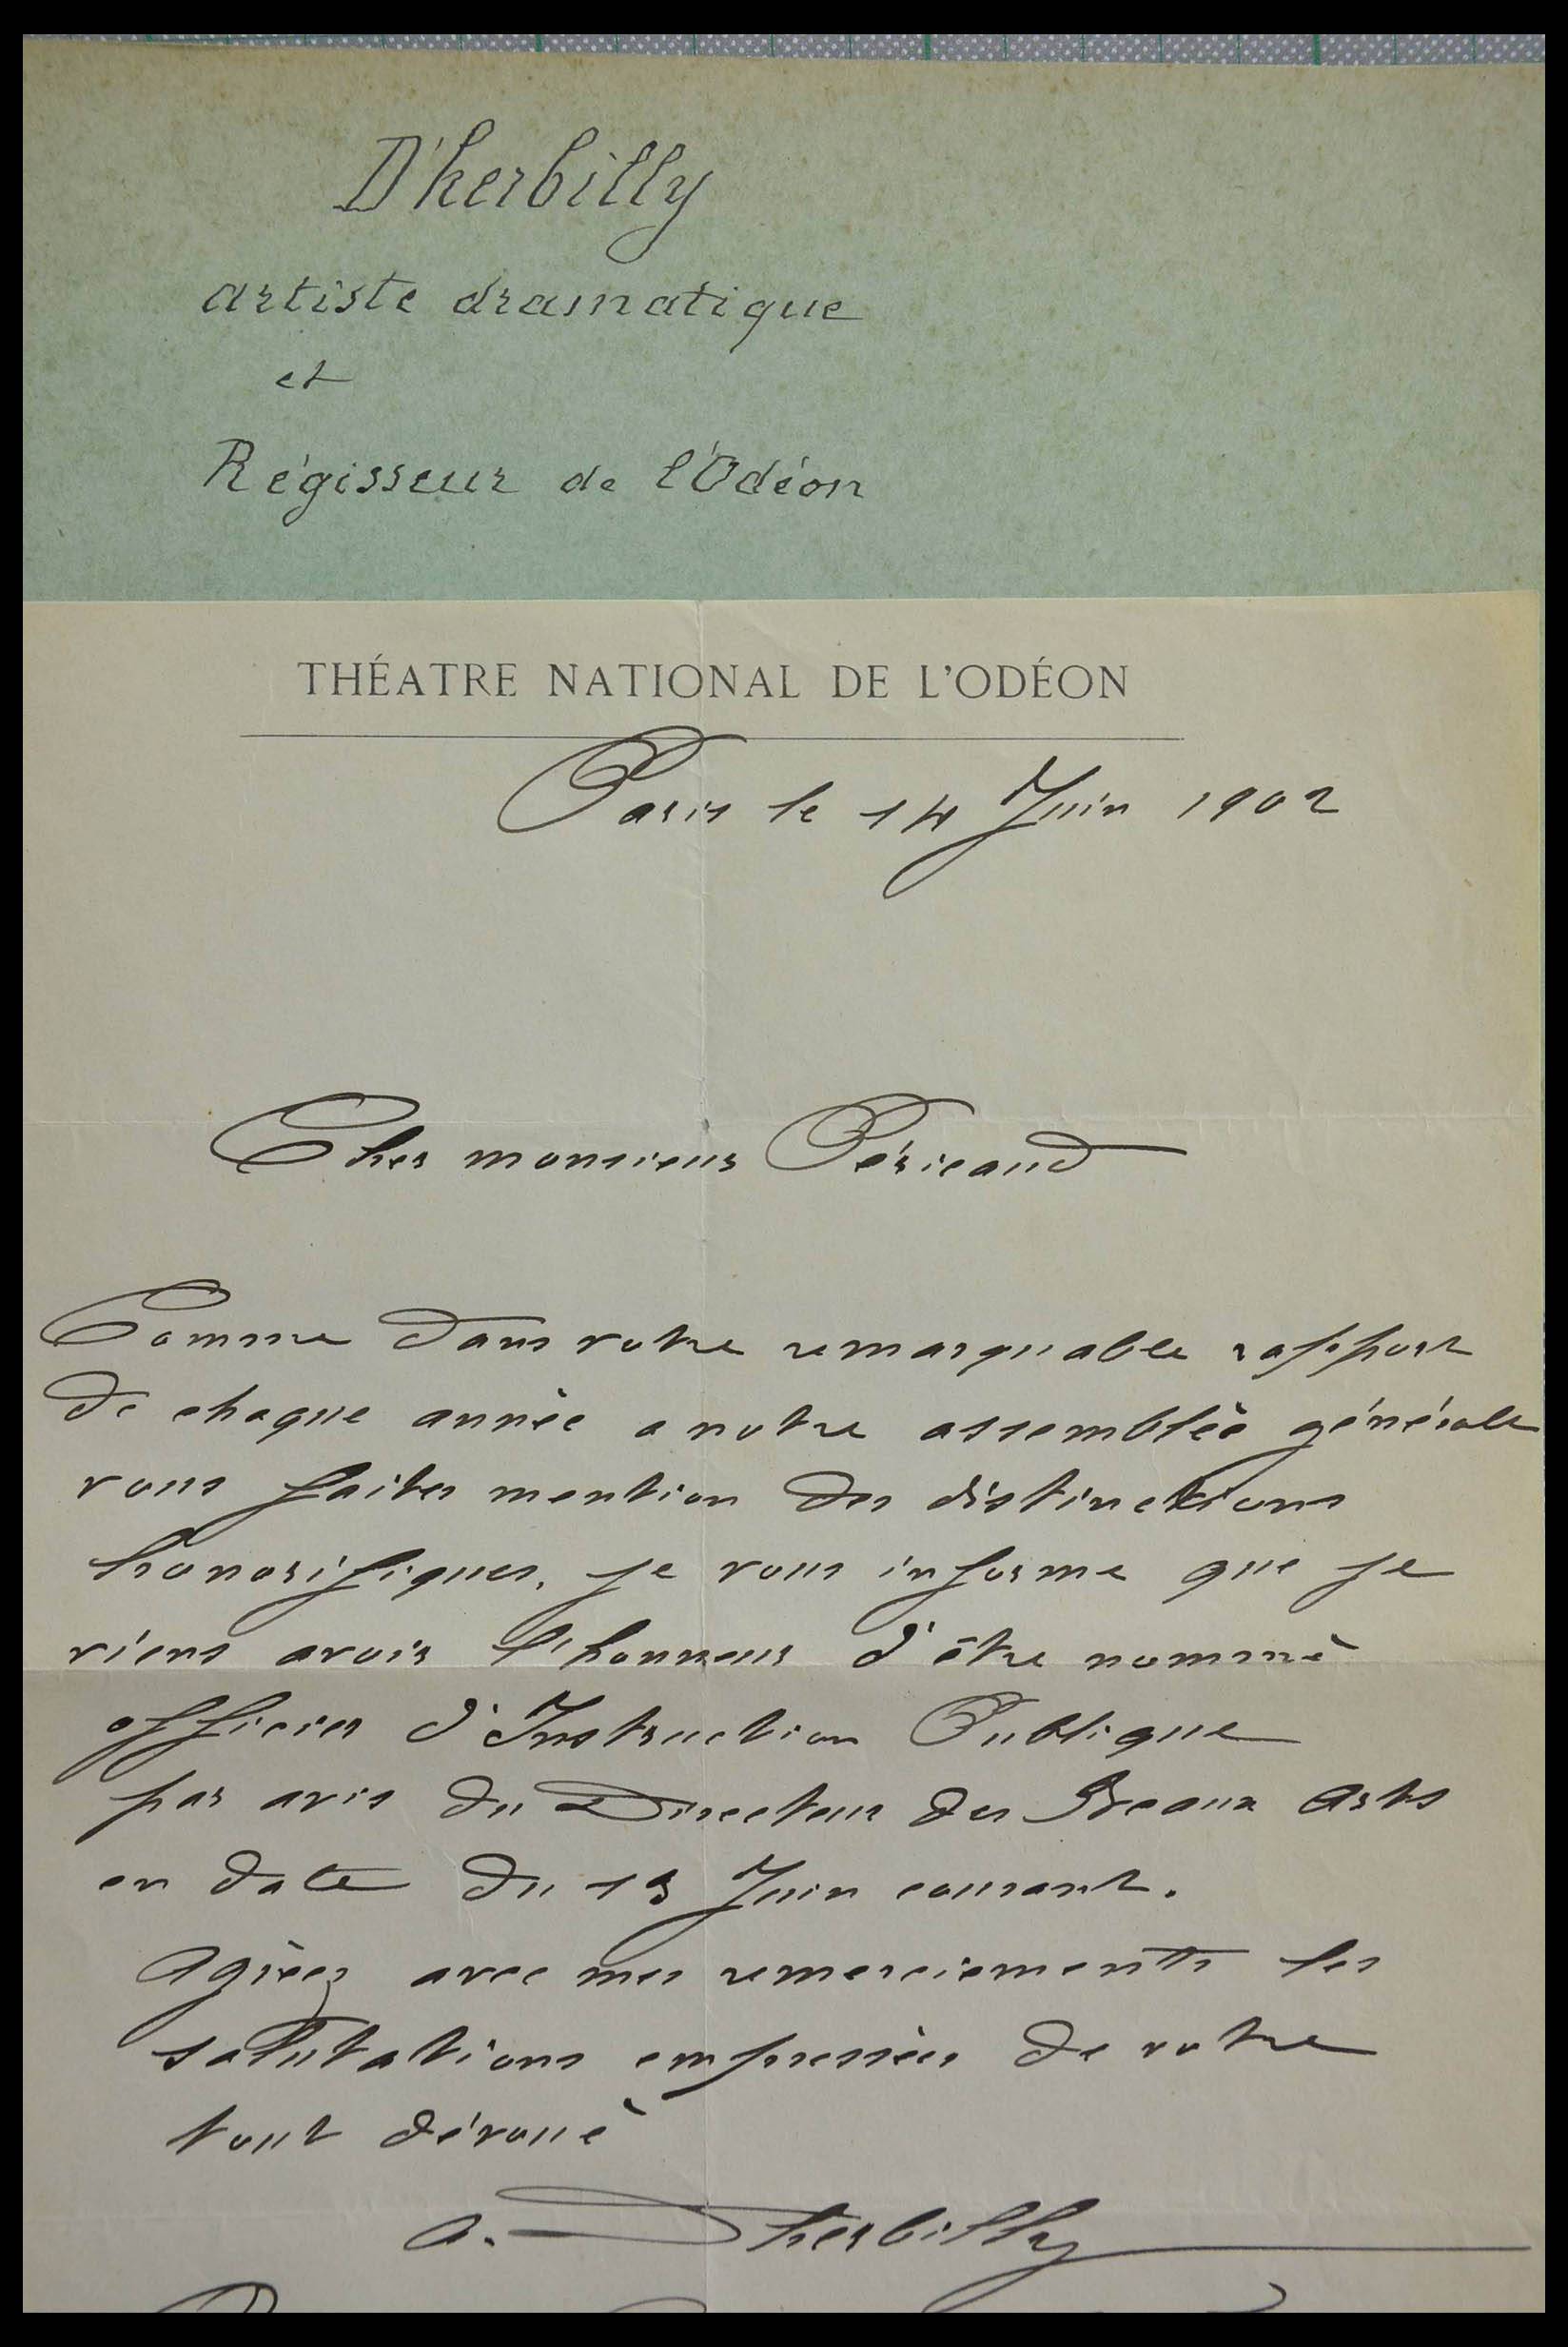 D'herbilly
artiste dramatique
et
Régisseur de l'Odéon
THÉATRE NATIONAL DE L'ODÉON
Paris le 14 Juin 1902
Cher monsieur Péricaud
Comme dans votre remarquable rapport
de chaque année a notre assemblée générale
vous faites mention des distinctions
honorifiques, je vous informe que je
viens avoir l'honneur d'être nommé
officier d'Instruction Publique
par avis du Directeur des Beaux Arts
en date du 13 Juin courant.
Agréez avec mes remerciements les
salutations empressées de votre
tout dévoué
A. Dherbilly